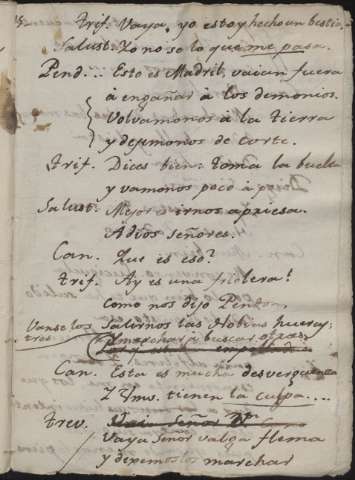 Trif. Vaya, yo estoy hecho un bestia.
Salust. Yo no se lo que me pasa.
Pend... Esto es Madril, vaian fuera
à engañar à los demonios.
Volvamonos à la tierra
y dejemonos de Corte.
Trif. Dices bien: toma la buelta
y vamonos poco à p
Salust. Mejor es irnos apriesa.
A dios señores.
Can. Que es eso?
Trif. Ay es una friolera!
como nos dijo Pendon,
Vanse los tres
Salirnos las Nobias hueras;
y marchar à buscar otras
Can. Esta es mucha desverguenza
Y Vms. tienen la culpa....
Trev.
Vaya Señor valga flema
y dejemoslos marchar